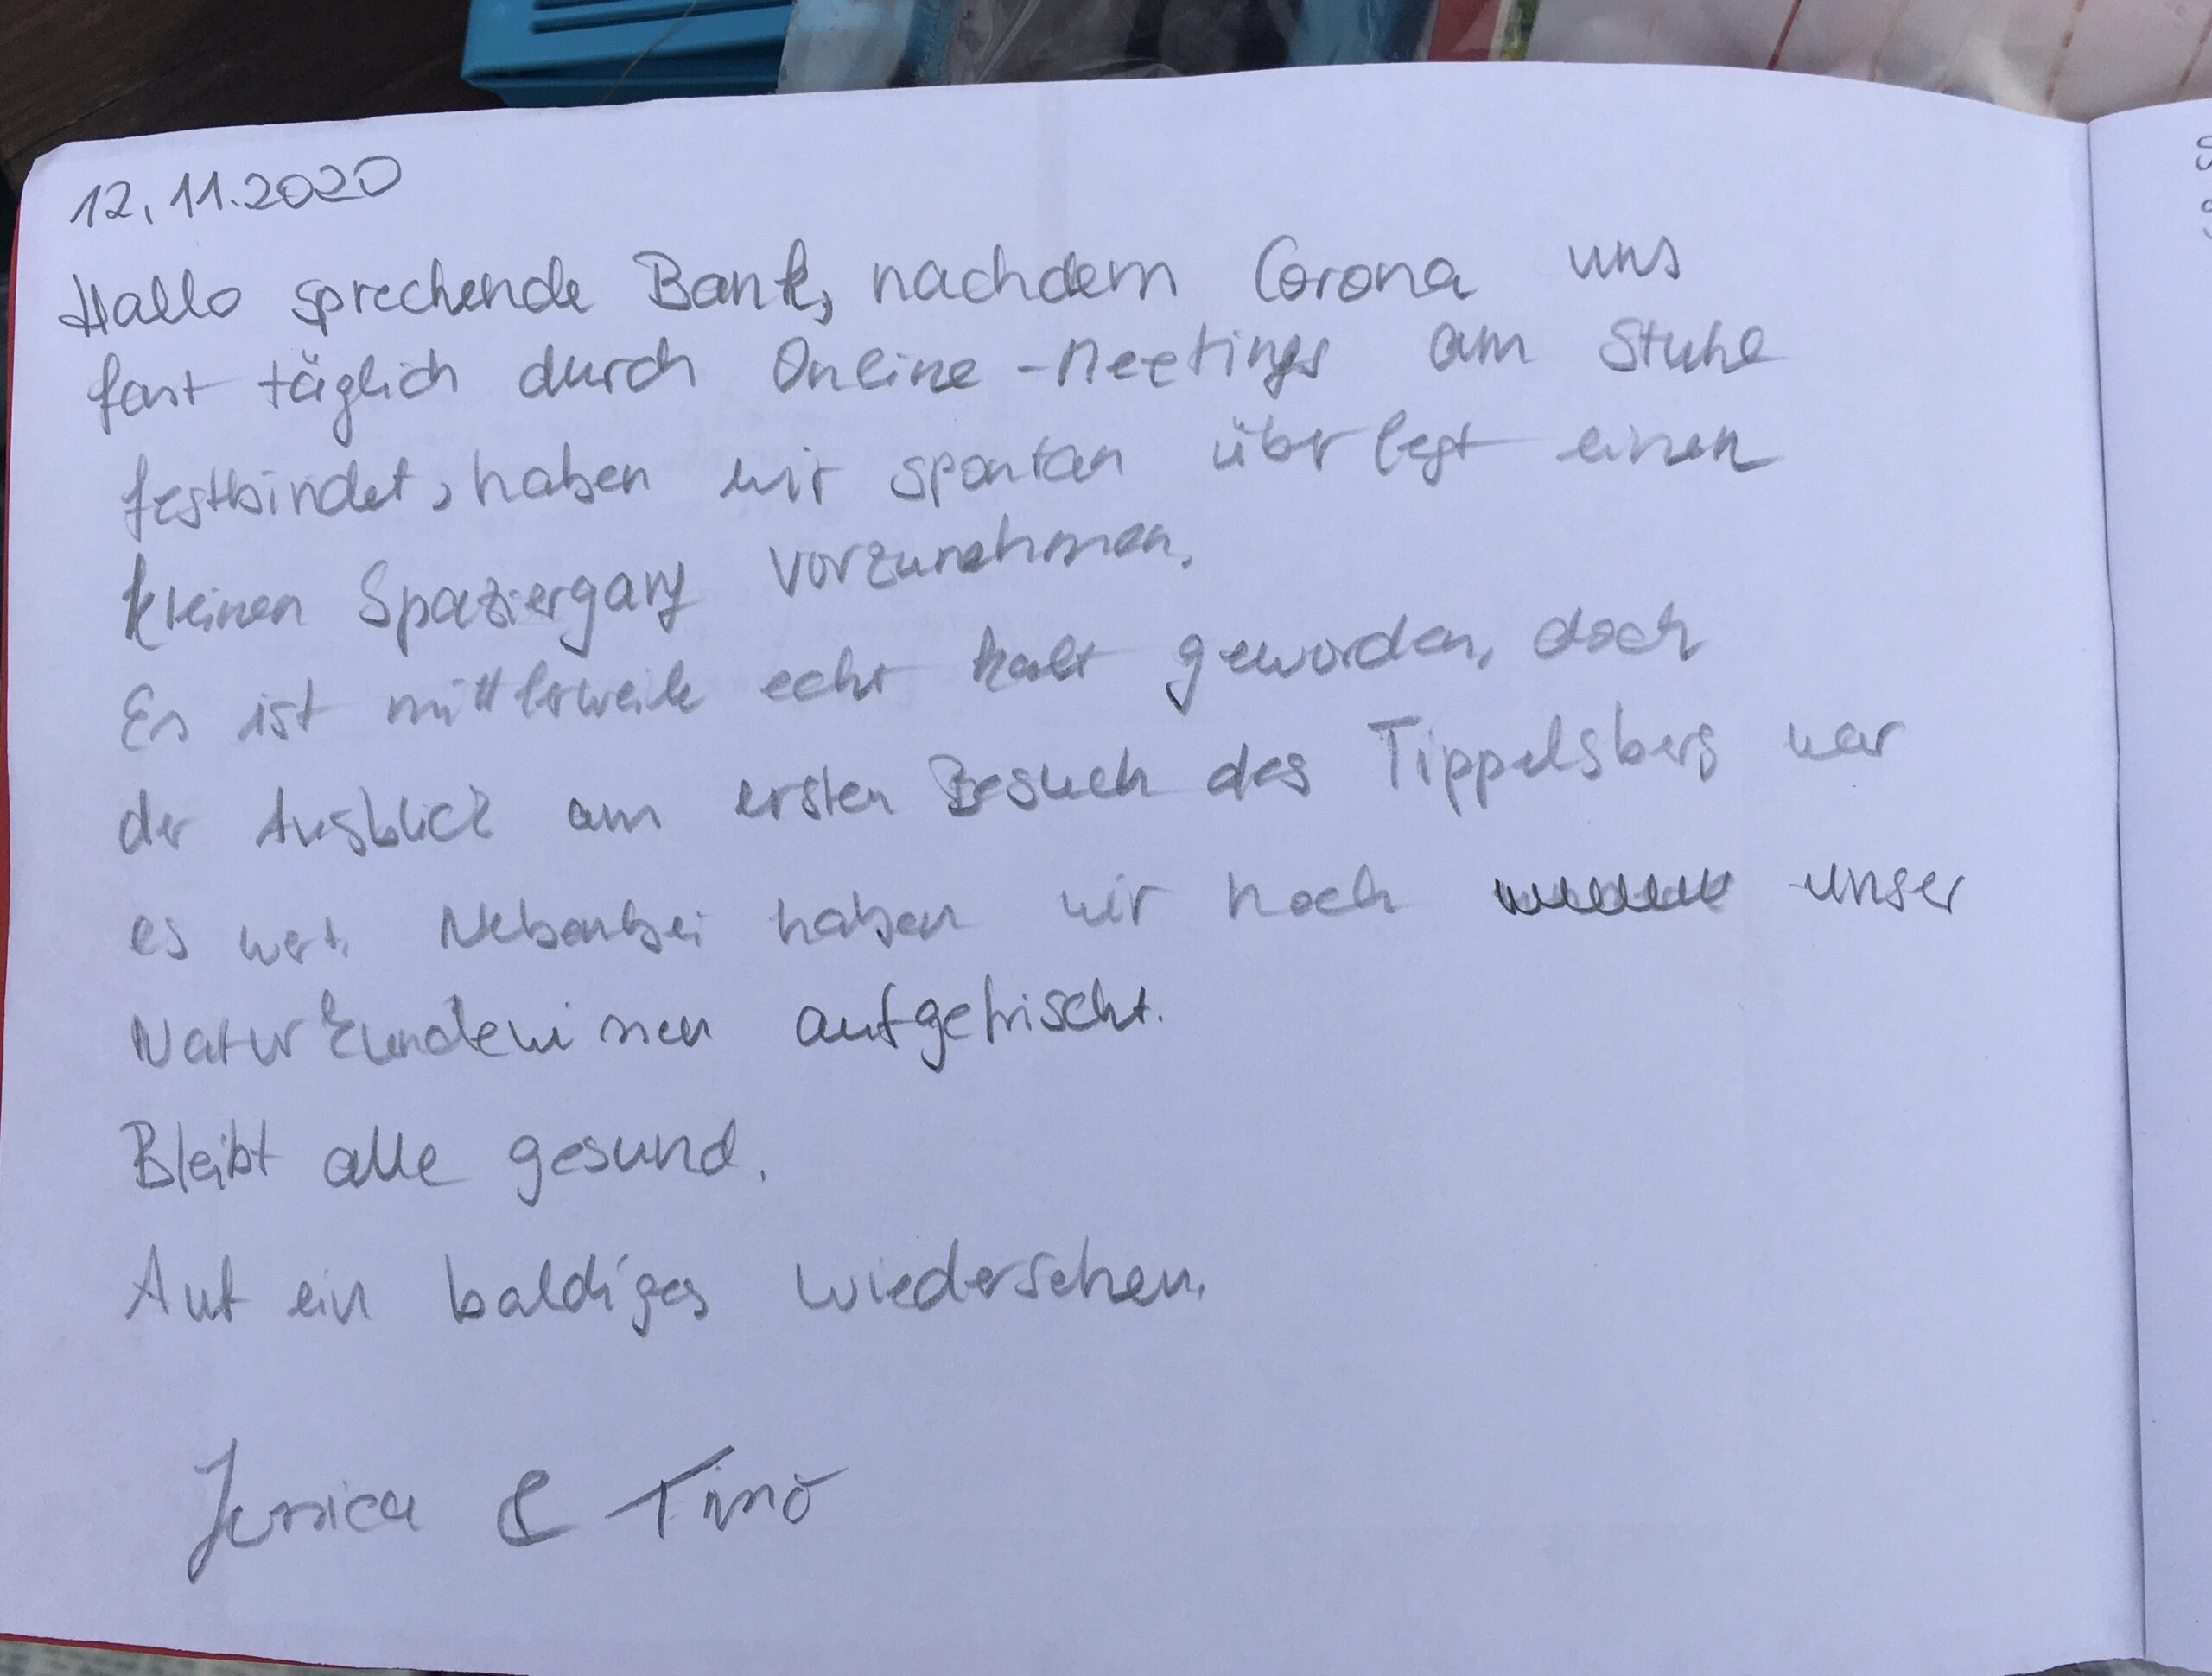 12.11.2020
Hallo sprechende Bank, nachdem Corona uns
fast täglich durch Online-Meetings am Stuhl
festbindet, haben wir spontan überlegt einen
kleinen Spaziergang vorzunehmen.
Es ist mittlerweile echt kalt geworden, doch
der Ausblick am ersten Besuch des Tippelsberg war
es wert. Nebenbei haben wir noch unser
Naturkundewissen aufgefrischt.
Bleibt alle gesund.
Auf ein baldiges Wiedersehen.
Jessica & Timo